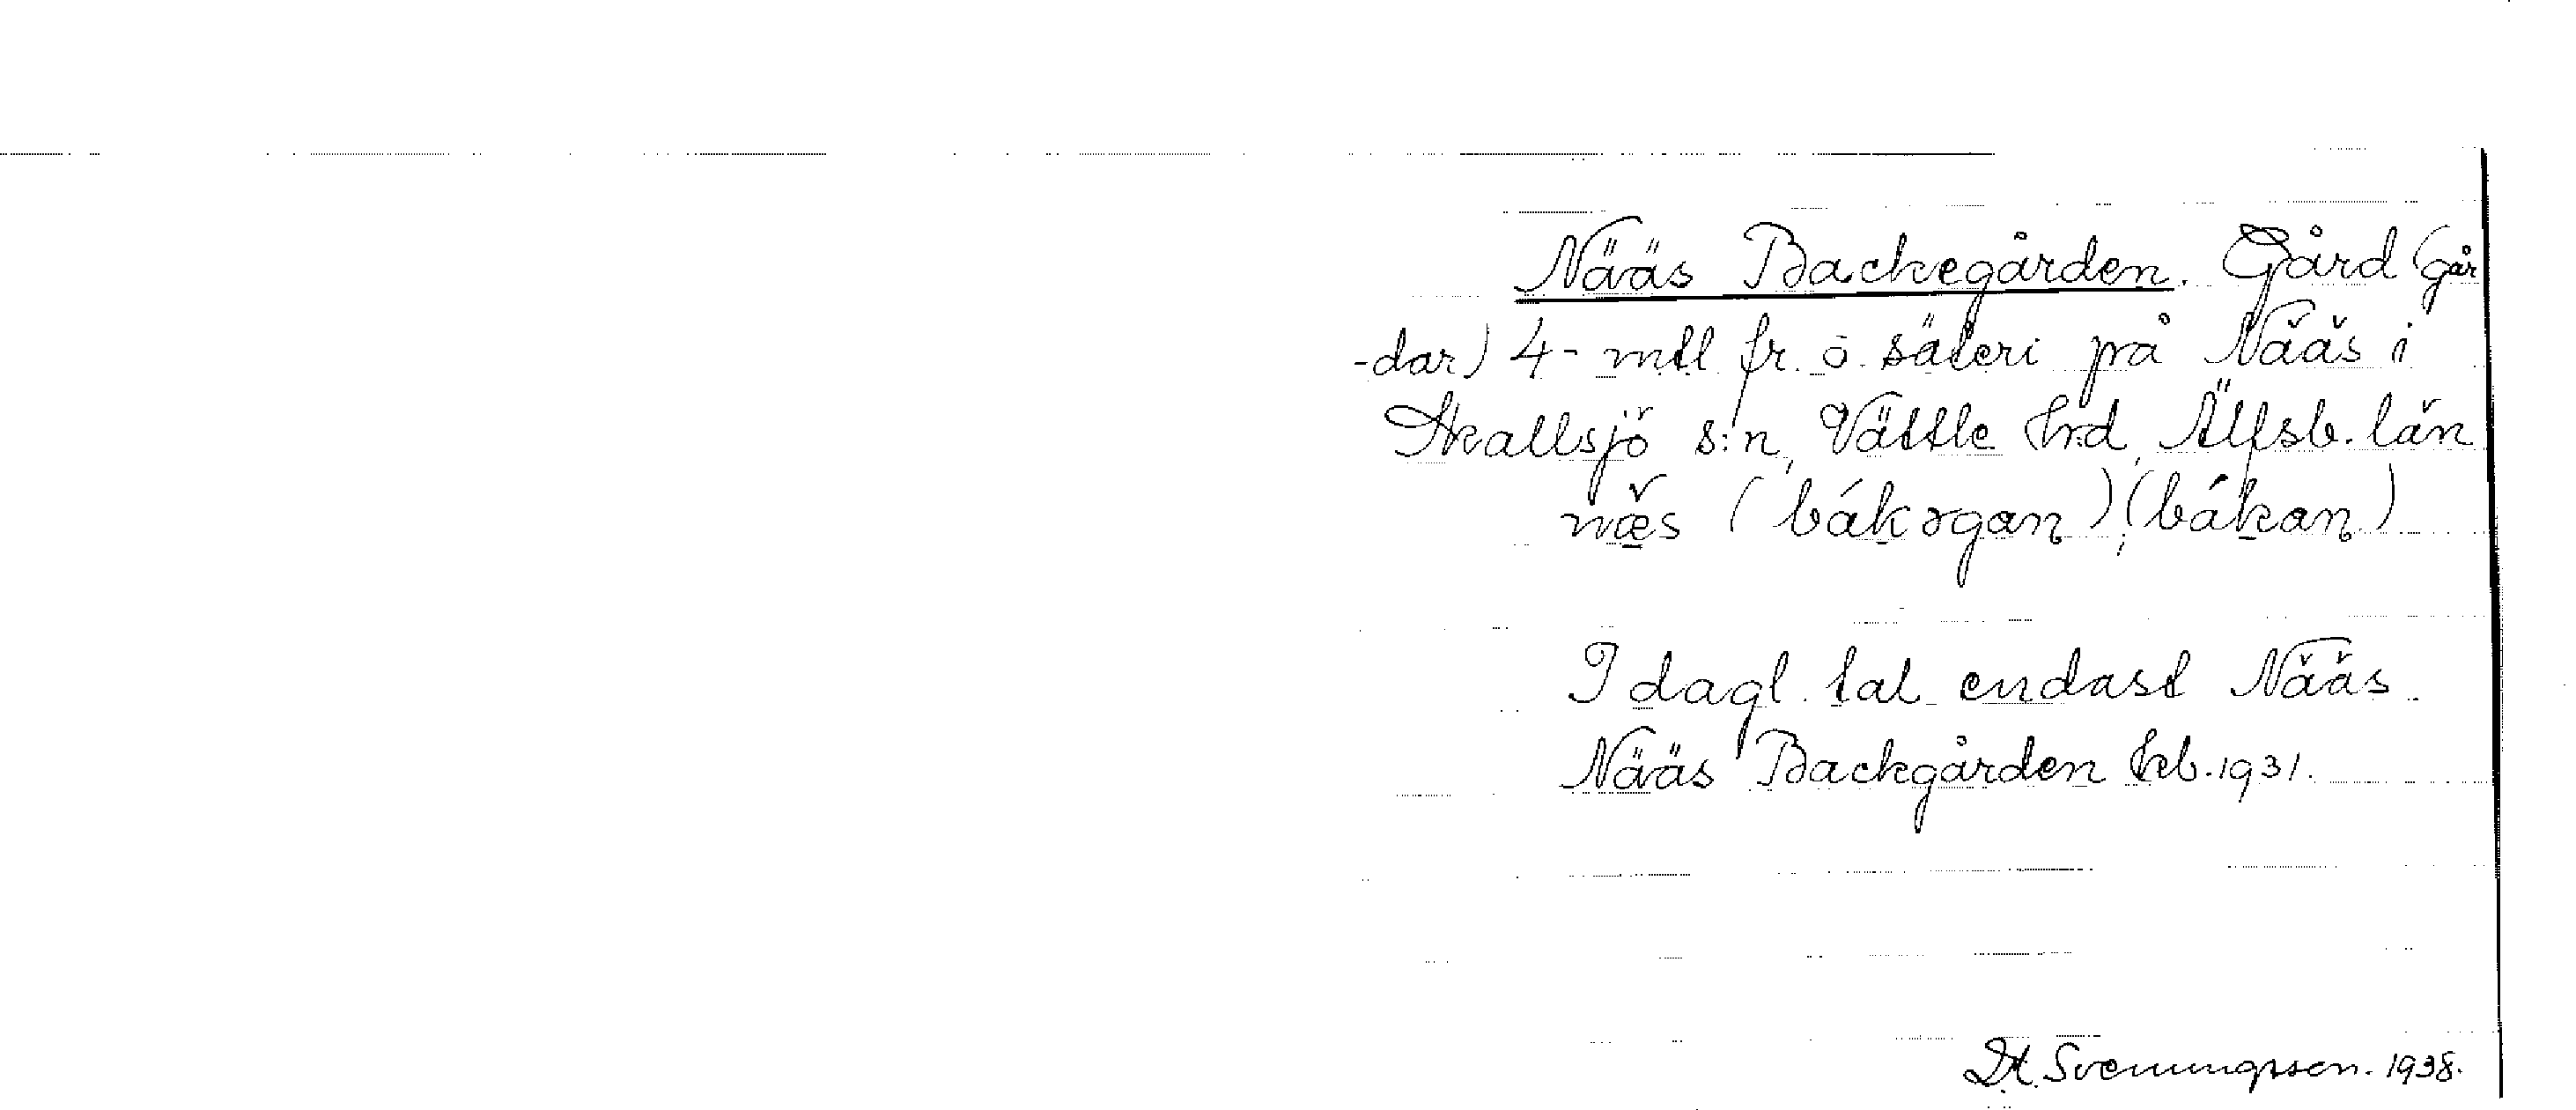 Nääs Backegården. Gård (går
-dar) 4- mtl fr. o. säteri på Nääs i
Skallsjö s:n, Vättle hrd, Älfsb. län
næs (bákɤgan); (bákan)
I dagl. tal endast Nääs.
Nääs Backgården kb. 1931.
Svenungsson. 1938.